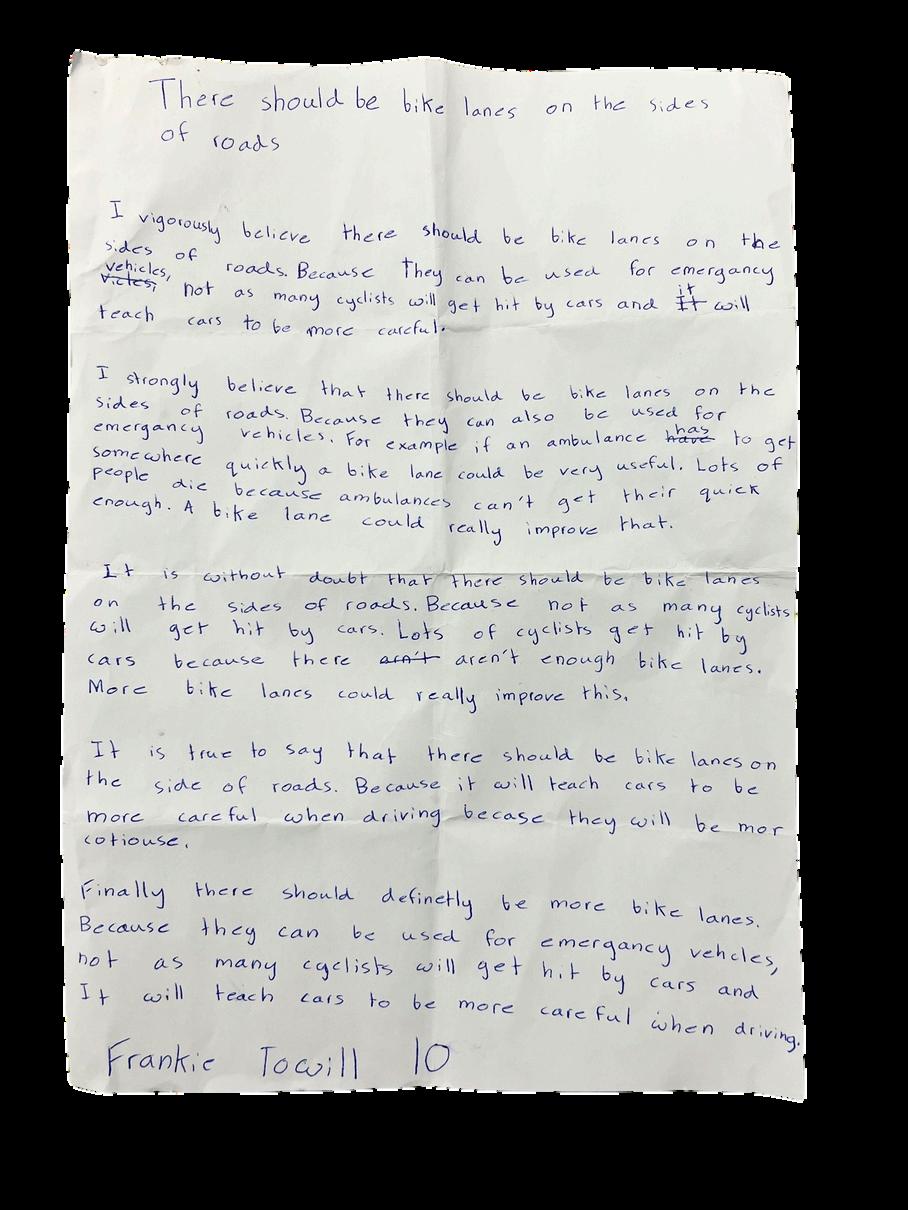 There should be bike lanes on the sides
of roads
I vigorously believe there should be bike lanes on the
sides of roads. Because They can be used for emergancy
vehicles, not as many cyclists will get hit by cars and it will
teach cars to be more careful.
I strongly believe that there should be bike lanes on the
sides of roads. Because they can also be used for
emergancy vehicles. For example if an ambulance has to get
somewhere quickly a bike lane could be very useful. Lots of
people die because ambulances can't get their quick
enough. A bike lane could really improve that.
It is without doubt that there should be bike lanes
on the sides of roads. Because not as many cyclists
will get hit by cars. Lots of cyclists get hit by
cars because there arn't aren't enough bike lanes.
More bike lanes could really improve this.
It is true to say that there should be bike lanes on
the side of roads. Because it will teach cars to be
more careful when driving becase they will be mor
cotiouse.
Finally there should definetly be more bike lanes.
Because they can be used for emergancy vehcles,
not as many cyclists will get hit by cars and
It will teach cars to be more careful when driving.
Frankie Towill 10